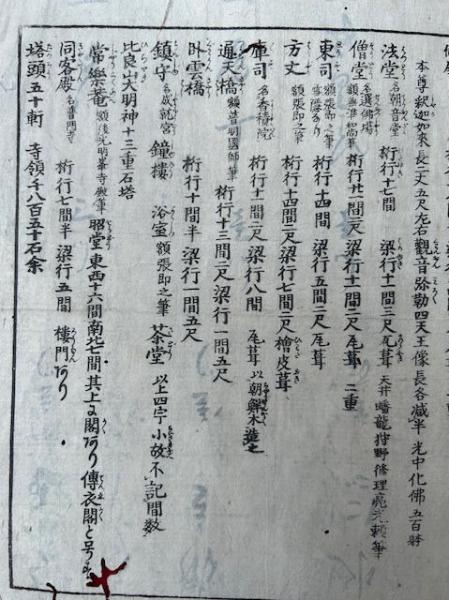 本尊釈迦如来長二丈五尺左右觀音弥勒四天王像長各减半 光中化佛五百躰
法堂 名朝音堂 桁行十七間 梁行十一間三尺 瓦葺 天井蟠龍狩野修理亮光頼筆
僧堂 名選佛場 額無準和尚筆 桁行廿一間二尺 梁行十一間二尺 瓦葺 二重
東司 額張即之筆 雪隠なり 桁行十四間 梁行五間三尺 瓦葺
方丈 額張即之筆 桁行十四間二尺 梁行七間二尺 檜皮葺
庫司 名香積院 桁行十一間二尺 梁行八間 瓦葺 以朝鮮木造之
通天橋 額普明國師筆 桁行十三間二尺 梁行一間五尺
臥雲橋 桁行十間半 梁行一間五尺
鎮守 名成就宮 鐘樓 浴室 額張即之筆 茶堂 以上四宇小故不記間数
比良山大明神十三重石塔
常樂菴 額後光明峯寺殿筆 昭堂 東西十六間南北七間其上に閣あり傳衣閣と号す
同客殿 名普門寺 桁行七間半 梁行五間 樓門あり
塔頭五十軒 寺領千八百五十石余